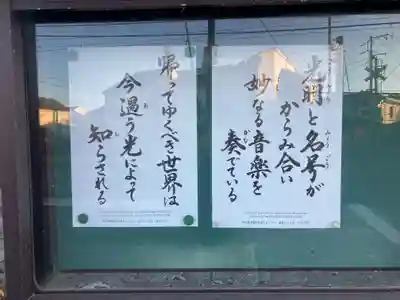 光明と名号が
からみ合い
妙なる音楽を
奏でている
帰ってゆくべき世界は
今遇う光によって
知らされる